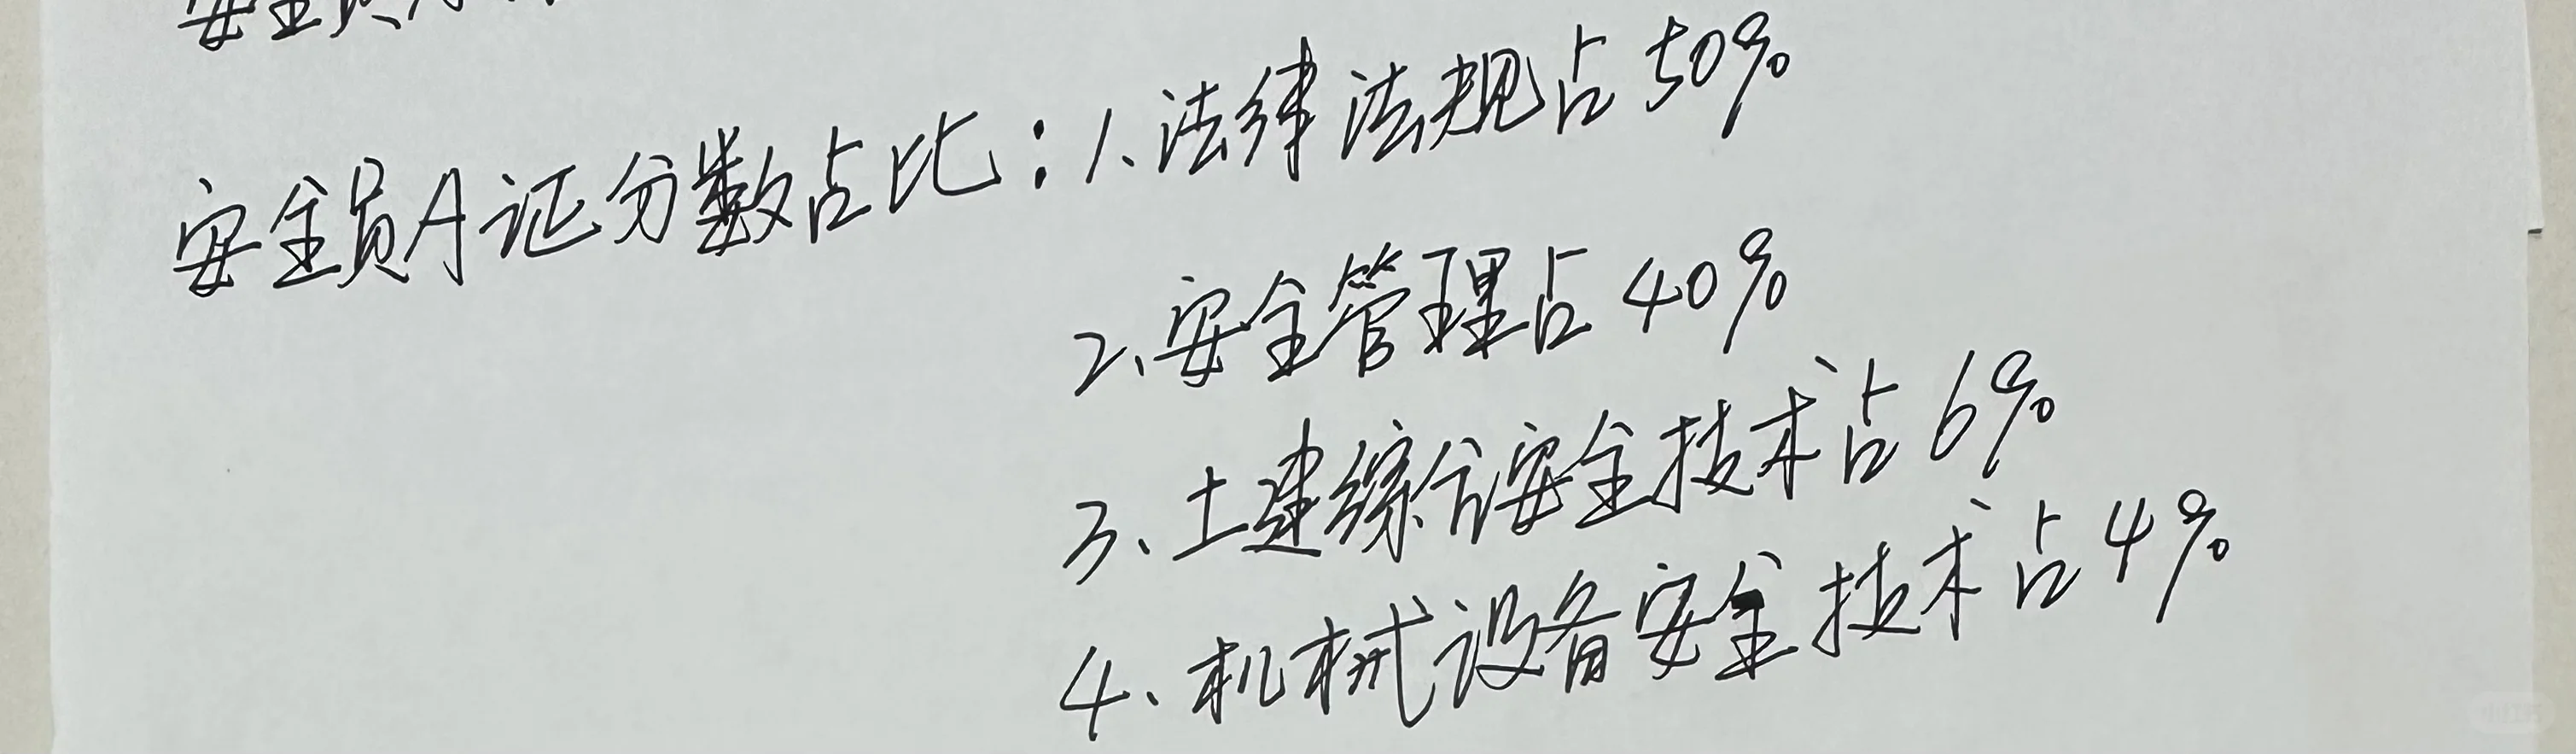 安全员A证分数占比：1.法律法规占50%
2、安全管理占40%
3、土建综合安全技术占6%
4、机械设备安全技术占4%